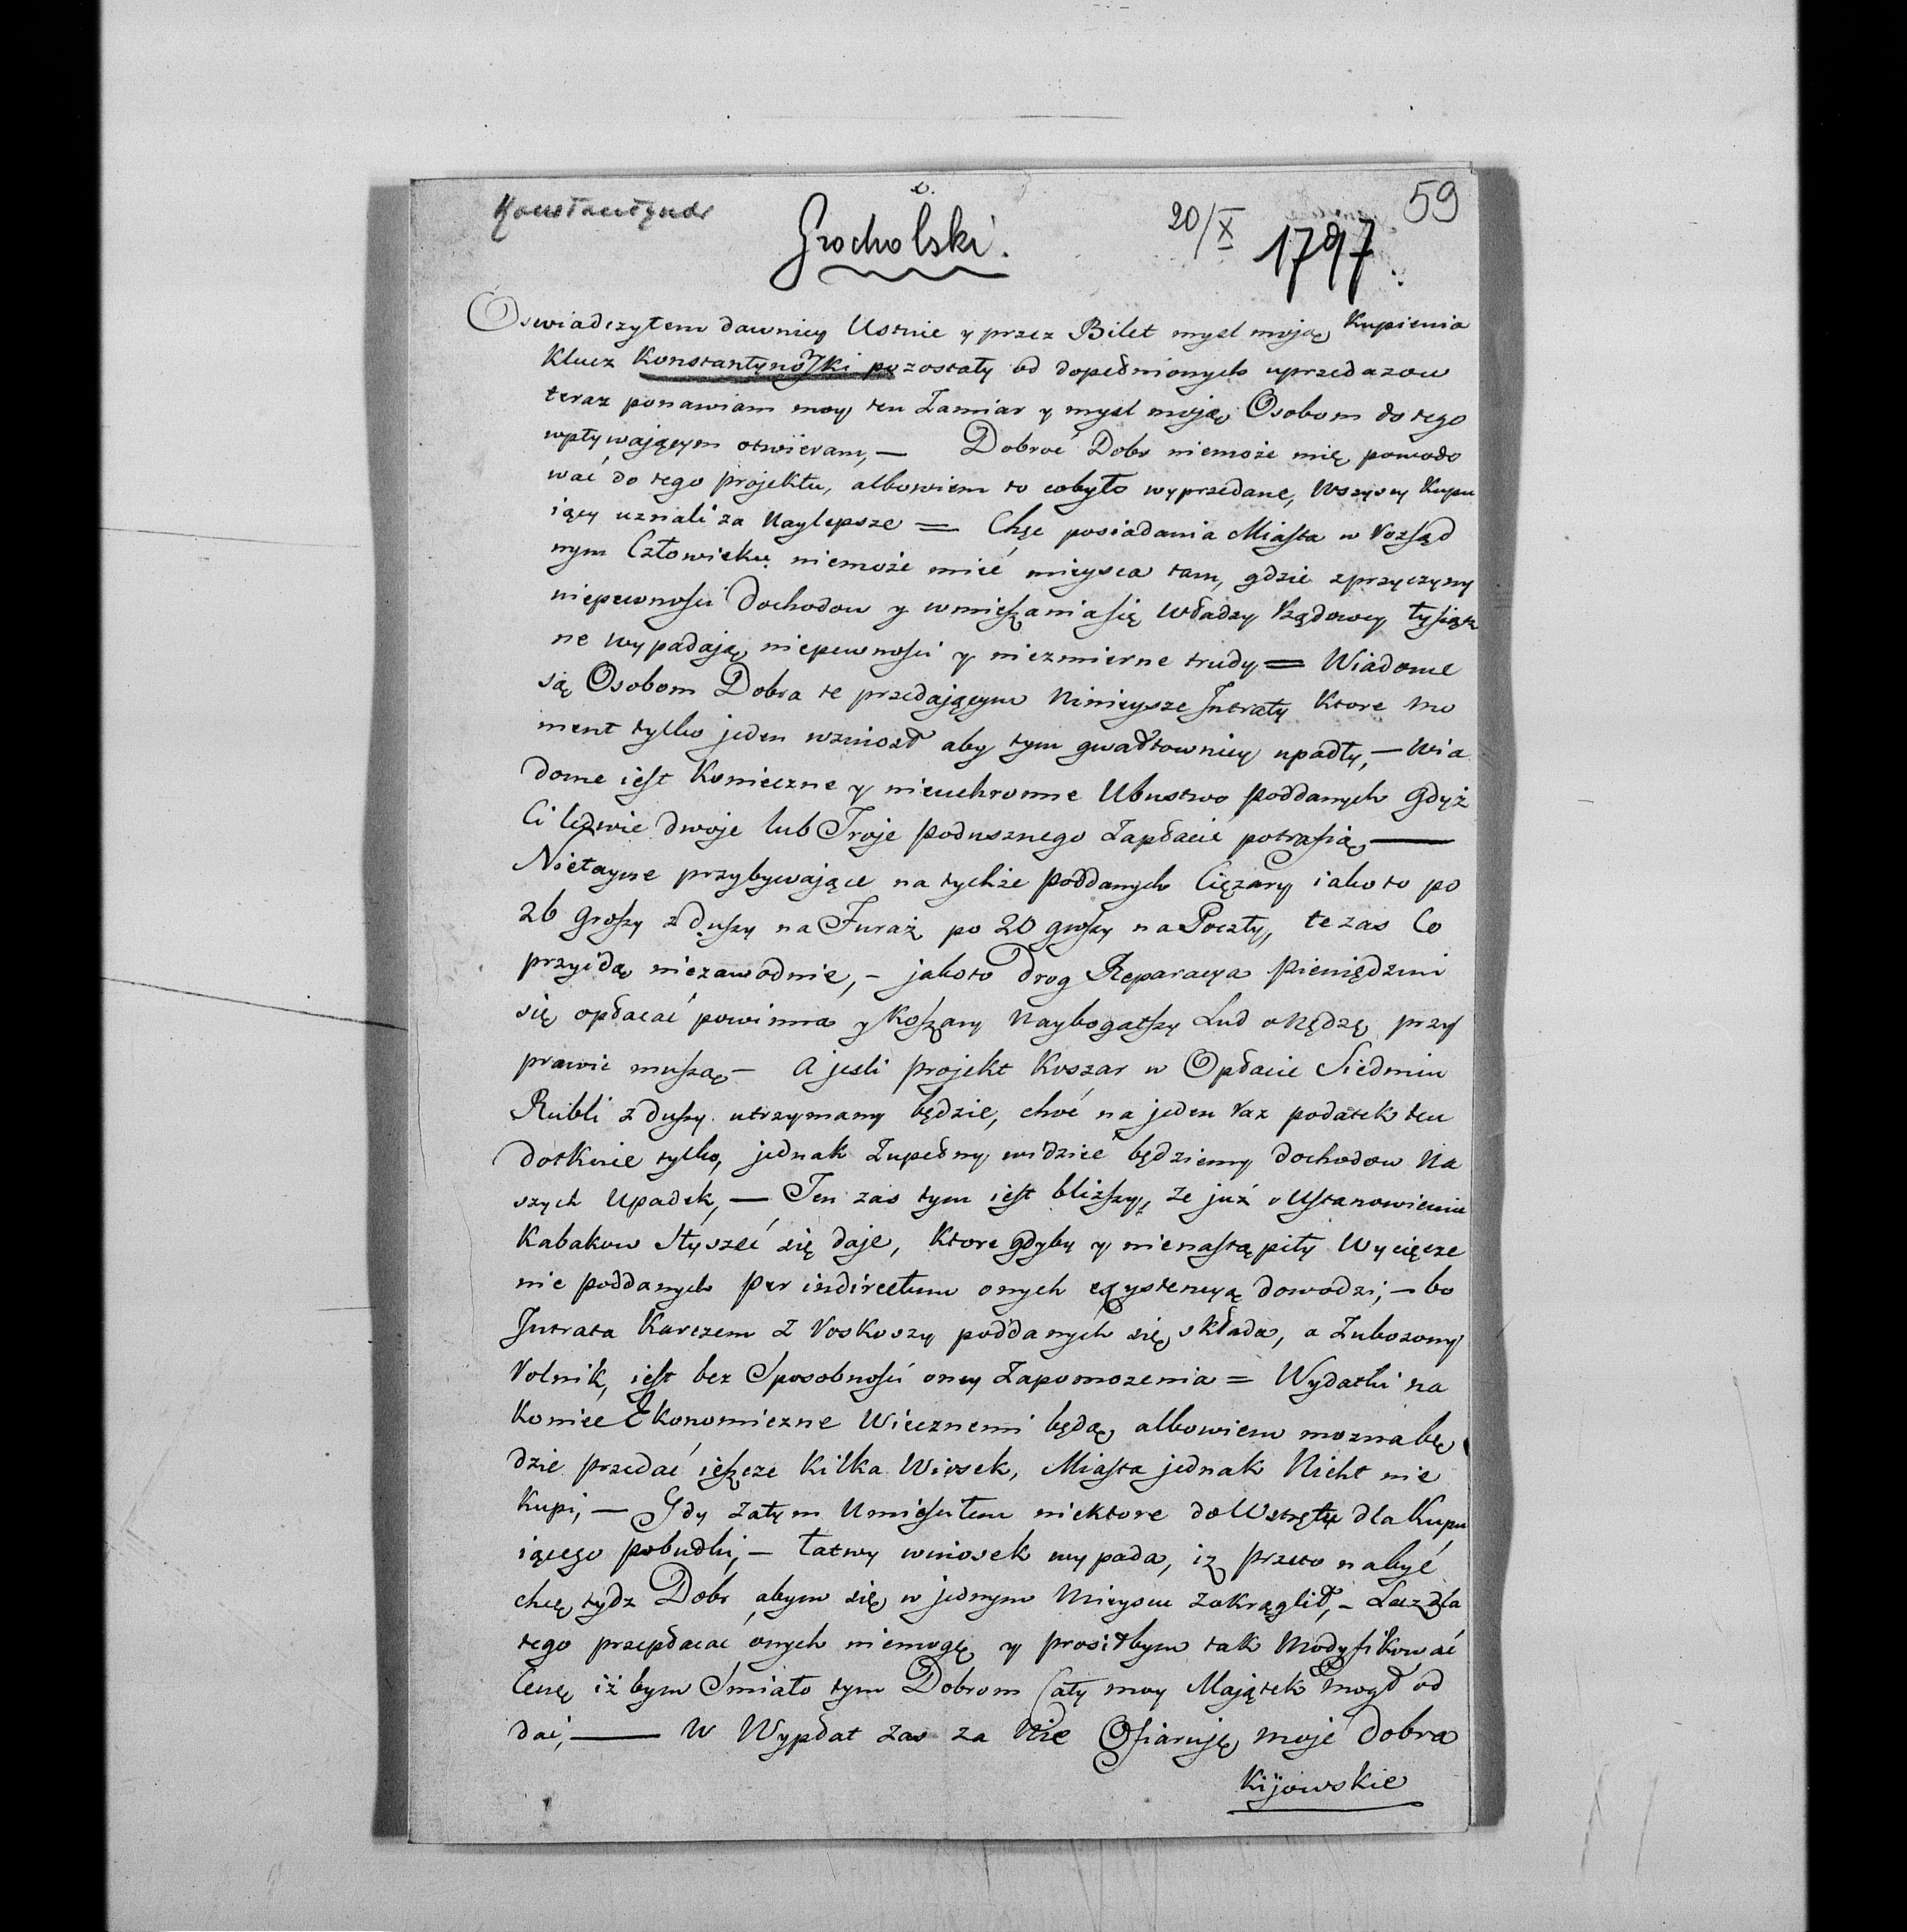 Konstantynów
59
Grocholski.
20/X 1797.
Oswiadczyłem dawniey Ustnie y przez Bilet mysl moją Kupienia
Klucz Konstantynowski pozostały od dopełnionych uprzedazow
teraz ponawiam moy ten Zamiar y mysl moją Osobom do tego
wpływającym otwieram, — Dobroć Dobr niemoże mię powodo
wać do tego projektu, albowiem to cobyło wyprzedane, wszyscy Kupu
iący uznali za Naylepsze = Chęć posiadania Miasta w Rozsąd
nym Człowieku niemoże mieć mieysca tam, gdzie zprzyczyny
niepewności Dochodow y wmieszaniasię Władzy Rządowey tysiącz
ne wypadają niepewności y niezmierne trudy = Wiadome
są Osobom Dobra te przedającym Ninieysze Intraty Ktore mo
ment tylko jeden wzniosł aby tym gwałtowniey upadły, — Wia
dome iest Konieczne y nieuchronne Ubustwo poddanych gdyż
Ci ledwie dwoje lub Troje podusznego Zapłacić potrafią —
Nietayne przybywające na tychże poddanych Ciężary iako to po
26 Groszy z duszy na Furaż po 20 groszy na Poczty, te zas Co
przyidą niezawodnie, — jakoto Drog Reparacya pieniędzmi
się opłacać powinna y Koszary Naybogatszy Lud o Nędzę przy
prawić muszą — A jesli projekt Koszar w Opłacie Siedmiu
Rubli z duszy utrzymany będzie, choć na jeden raz podatek ten
dotknie tylko, jednak Zupełny widzieć będziemy dochodow Na
szych Upadek, — Ten zas tym iest bliższy, ze już o Ustanowieniu
Kabakow słyszeć się daje, Ktore gdyby y nienastąpiły Wycięcze
nie poddanych per indirectum onych egzystencyą dowodzi; — bo
Intrata Karczem z Roskoszy poddanych się składa, a Zubozony
Rolnik, iest bez Sposobności oney Zapomozenia = Wydatki na
koniec Ekonomiczne Wiecznemi będą albowiem mozna bę
dzie przedać ieszcze Kilka Wiosek, Miasta jednak Nicht nie
Kupi, — Gdy zatym Umieściłem niektore do Wstrętu dla Kupu
iącego pobudki, — łatwy wniosek wypada, iż przeto nabyć
chcę tych Dobr abym się w jednym Mieyscu zakrąglił, — Lecz dla
tego przepłacać onych niemogę y prosiłbym tak Modyfikować
Cenę iż bym śmiało tym Dobrom Cały moy Majątek mogł od
dać, — W Wypłat zas za Nie Ofiaruję moje Dobra
Kijowskie